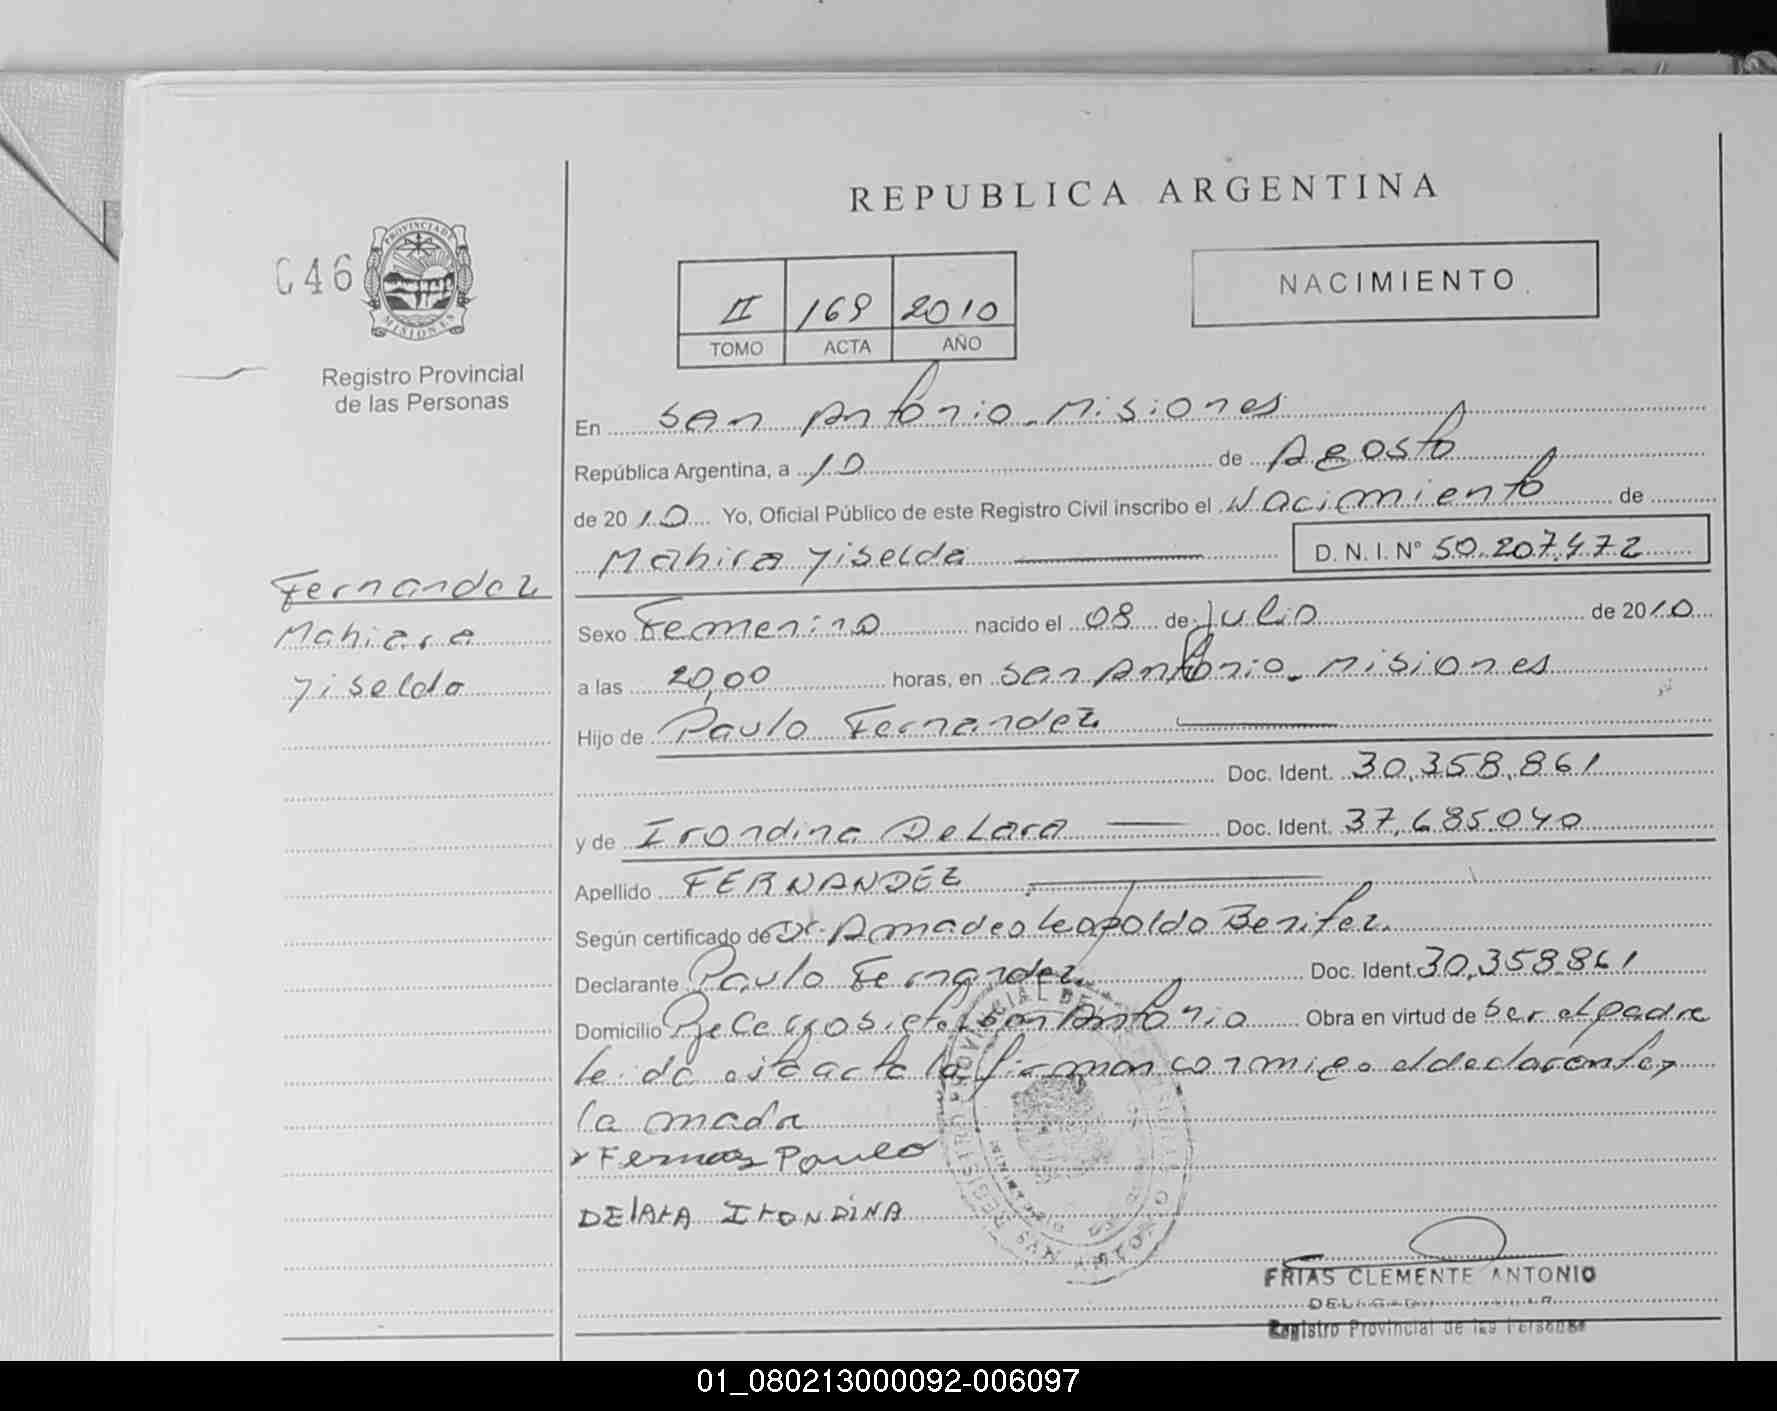 REPUBLICA ARGENTINA
C46
PROVINCIA DE
MISIONES
Registro Provincial
de las Personas
II 169 2010
TOMO ACTA AÑO
NACIMIENTO
En San Antonio - Misiones
República Argentina, a 10 de Agosto
de 2010 Yo, Oficial Público de este Registro Civil inscribo el Nacimiento de
Mahira Yiselda D. N. I. N° 50.207.472
Fernandez
Mahiara
Yiselda
Sexo Femenino nacido el 08 de Julio de 2010
a las 20,00 horas, en San Antonio - Misiones
Hijo de Paulo Fernandez
Doc. Ident. 30.358.861
y de Irondina De Lara Doc. Ident. 37.685.040
Apellido FERNANDEZ
Según certificado de Dr. Amadeo Leopoldo Benitez.
Declarante Paulo Fernandez Doc. Ident. 30.358.861
Domicilio San Antonio Obra en virtud de ser el padre
leida esta acta la firman conmigo el declarante y
la madre
Paulo
DElARA IRONDINA
FRIAS CLEMENTE ANTONIO
Registro Provincial de las Personas
01_080213000092-006097